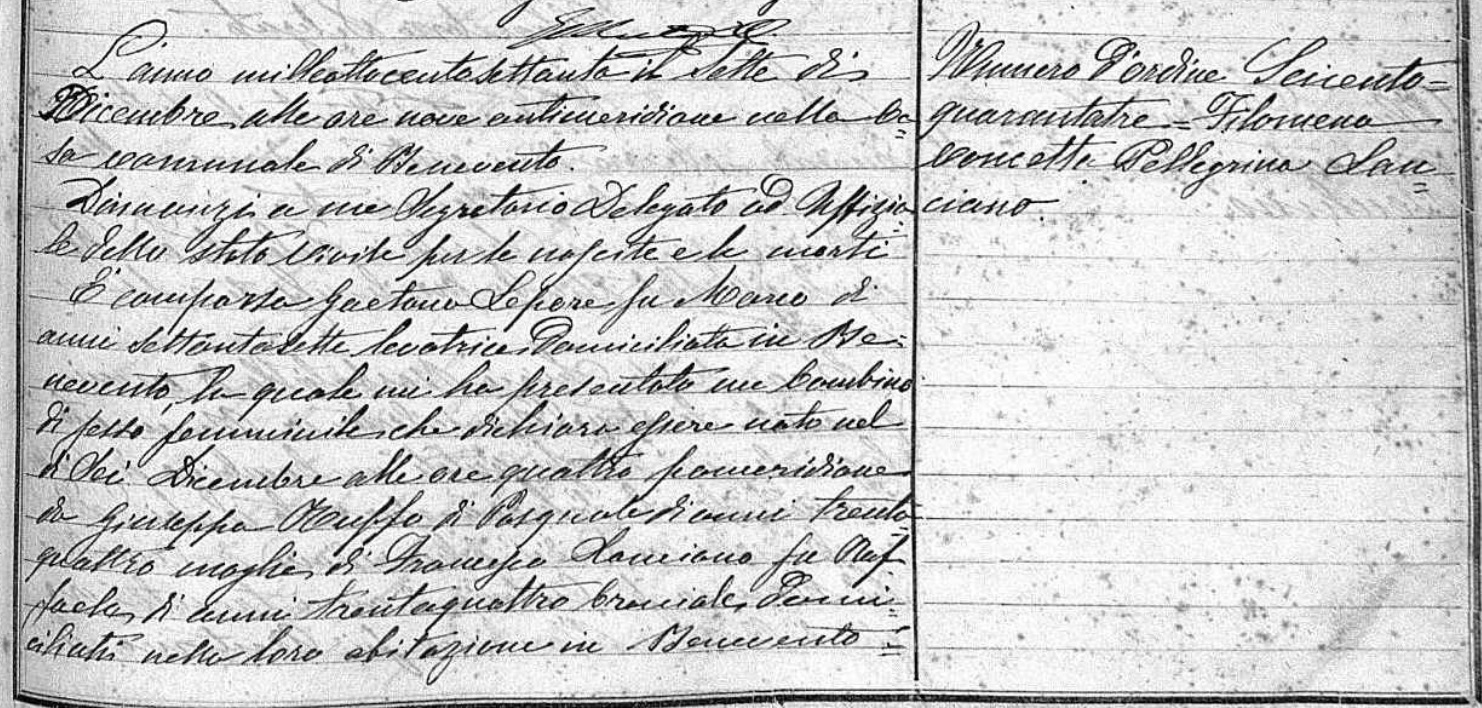 L'anno milleottocentosettanta il Sette di
Dicembre alle ore nove antimeridiane nella Ca=
sa comunale di Benevento.
Dinanzi a me Segretario Delegato ad Uffizia
le dello stato Civile per le nascite e le morti
È comparsa Gaetana Lepore fu Marco di
anni settantasette levatrice Domiciliata in Be=
nevento, la quale mi ha presentato un bambino
di sesso femminile che dichiara essere nato nel
di Sei Dicembre alle ore quattro pomeridiane
da Giuseppa Ruffo di Pasquale di anni trenta
quattro moglie di Francesco Lanciano fu Raf
faele di anni trentaquattro bracciale Domi=
ciliati nella loro abitazione in Benevento =
Numero d'ordine Seicento=
quarantatre = Filomena
Concetta Pellegrina Lan=
ciano.